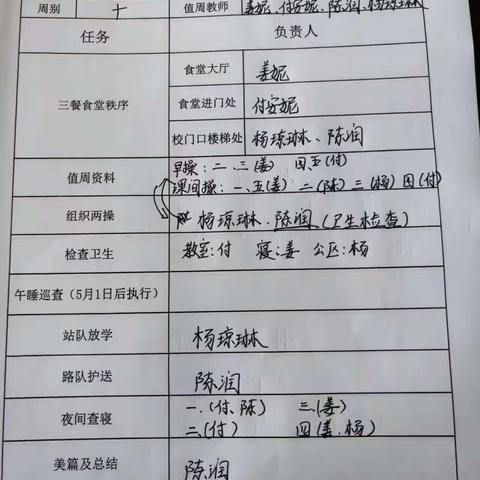 周别 十 值周教师 姜妮、付安妮、陈润、杨琼琳
任务 负责人
三餐食堂秩序
食堂大厅 姜妮
食堂进门处 付安妮
校门口楼梯处 杨琼琳、陈润
早操：二、三(姜) 四、五(付)
值周资料
课间操：一、五(姜) 二(陈) 三(杨) 四(付)
组织两操 杨琼琳、陈润(卫生检查)
检查卫生 教室：付 寝：姜 公区：杨
午睡巡查（5月1日后执行）
站队放学 杨琼琳
路队护送 陈润
夜间查寝
一、(付、陈) 三、(姜)
二、(付) 四(姜、杨)
美篇及总结 陈润